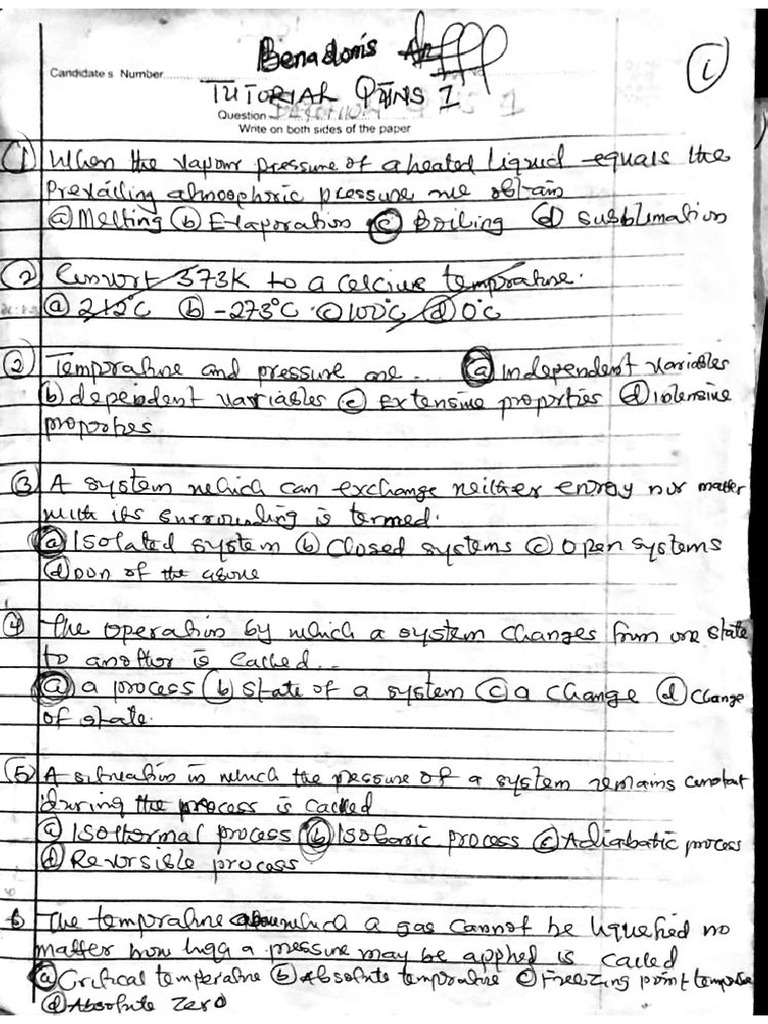 Benadonis
Candidate's Number
TUTORIAL QTNS 1
Question
Write on both sides of the paper
(i)
(1) When the vapour pressure of a heated liquid equals the
prevailing atmospheric pressure we obtain
(a) Melting (b) Evaporation (c) Boiling (d) Sublimation
(2) Convert 373K to a celcius temperature.
(a) 212°C (b) -273°C (c) 100°C (d) 0°C
(2) Temperature and pressure are... (a) independent variables
(b) dependent variables (c) extensive properties (d) intensive
properties
(3) A system which can exchange neither energy nor matter
with its surrounding is termed.
(a) Isolated system (b) Closed systems (c) Open systems
(d) non of the above
(4) The operation by which a system changes from one state
to another is called...
(a) a process (b) state of a system (c) a change (d) change
of state.
(5) A situation in which the pressure of a system remains constant
during the process is called
(a) Isothermal process (b) Isobaric process (c) Adiabatic process
(d) Reversible process
6 The temperature above which a gas cannot be liquefied no
matter how high a pressure may be applied is called
(a) Critical temperature (b) Absolute temperature (c) Freezing point temperature
(d) Absolute zero